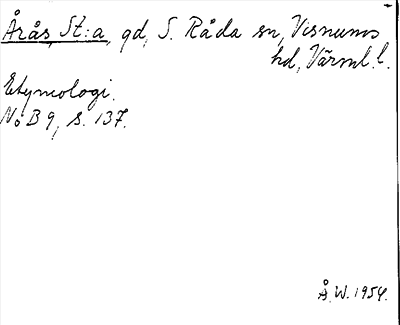 Årås, St:a, gd, S. Råda sn, Visnums
hd, Värml. l.
Etymologi.
NoB 9, s. 137.
Å.W. 1954.